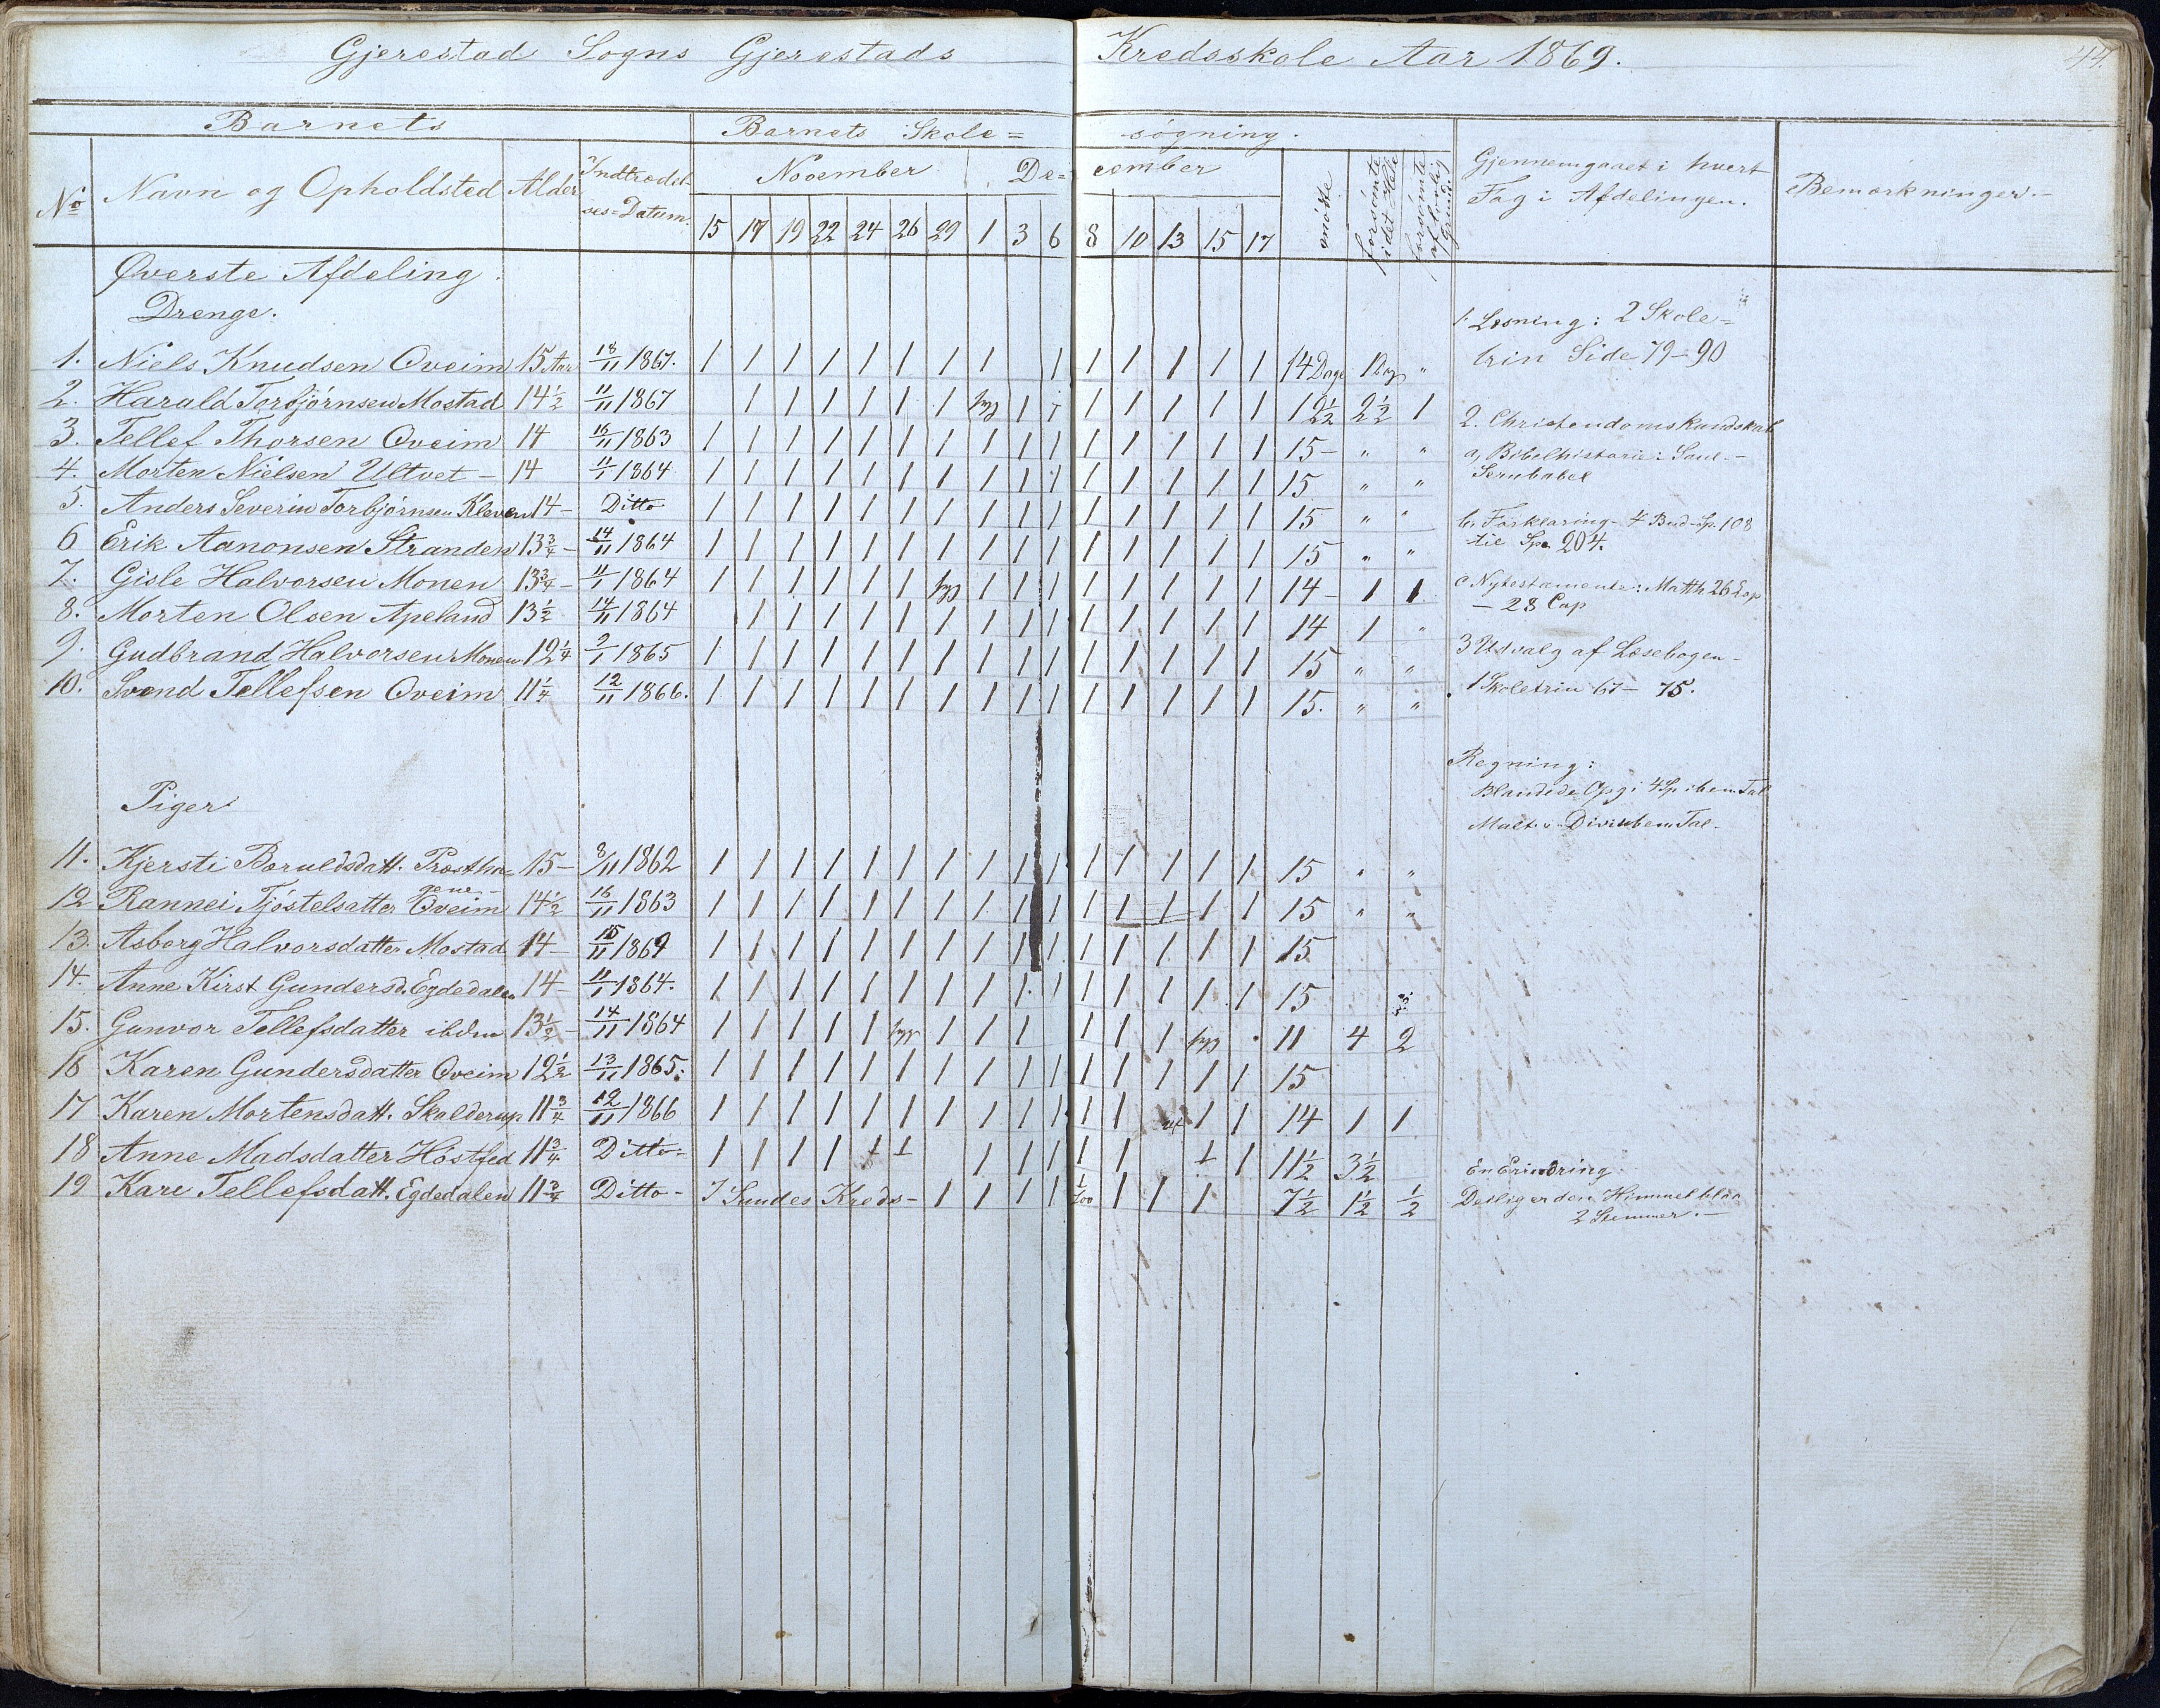 Gjerestad Sogns Gjerestads Kredsskole Aar 1869.
44.
Barnets
Barnets Skole=søgning.
No Navn og Opholdsted Alder Indtrædel-ses=Datum.
November De=cember
15 17 19 22 24 26 29 1 3 6 8 10 13 15 17
mødte forsømte idet Hele forsømte af lovlig Grund.
Gjennemgaaet i hvert
Fag i Afdelingen.
Bemærkninger.-
Øverste Afdeling.
Drenge.
1. Niels Knudsen Oveim 15 Aar 18/11 1867. 1 1 1 1 1 1 1 1 1 1 1 1 1 1 14 Dage 1 Dag "
2. Harald Torbjørnsen Mostad 14 1/2 11/11 1867 1 1 1 1 1 1 syg 1 1 1 1 1 1 1 12 1/2 2 1/2 1
3. Tellef Thorsen Oveim 14 16/11 1863 1 1 1 1 1 1 1 1 1 1 1 1 1 1 1 15 - " "
4. Morten Nielsen Ultvet - 14 11/1 1864 1 1 1 1 1 1 1 1 1 1 1 1 1 1 1 15 " "
5. Anders Severin Torbjørnsen Kleven 14 - Ditto 1 1 1 1 1 1 1 1 1 1 1 1 1 1 1 15 " "
6 Erik Aanonsen Stranden 13 3/4 - 14/11 1864 1 1 1 1 1 1 1 1 1 1 1 1 1 1 1 15 " "
7. Gisle Halvorsen Monen 13 3/4 - 11/1 1864 1 1 1 1 1 1 syg 1 1 1 1 1 1 1 1 14 - 1 1
8. Morten Olsen Apeland 13 1/2 14/11 1864 1 1 1 1 1 1 1 1 1 1 1 1 1 1 14 1 "
9. Gudbrand Halvorsen Monen 12 1/4 9/1 1865 1 1 1 1 1 1 1 1 1 1 1 1 1 1 1 15 " "
10. Svend Tellefsen Oveim 11 1/4 12/11 1866. 1 1 1 1 1 1 1 1 1 1 1 1 1 1 1 15. " "
1. Læsning: 2 Skole=
trin Side 79-90
2. Christendomskundskab
a, Bibelhistorie: Saul.-
Serubabel
b, Forklaring - 4 Bud - Sp. 108
til Sp. 204.
c Nytestamente: Matth 26 Cap
- 28 Cap
3 Udvalg af Læsebogen -
1 Skoletrin 67- 75.
Regning:
Blandede Opg i 4 Sp iben. Tal
Mult. i Div. uben. Tal.
Piger
11. Kjersti Baruldsdatt. Præstha= 15 - 3/11 1862 1 1 1 1 1 1 1 1 1 1 1 1 1 1 1 15 " "
gene -
12 Rannei Tjøstelsatter Oveim 14 1/2 16/11 1863 1 1 1 1 1 1 1 1 1 1 1 1 1 1 1 15 " "
13. Asborg Halvorsdatter Mostad 14 - 15/11 1869 1 1 1 1 1 1 1 1 1 1 1 1 1 1 1 15
14. Anne Kirst Gundersd. Egdedalen 14 - 11/1 1864. 1 1 1 1 1 1 1 1 1 1 1 1 1 1 1 15
15. Gunvor Tellefsdatter ibdm 13 1/2 - 14/11 1864 1 1 1 1 1 syg 1 1 1 1 1 1 syg 11 4 2
16 Karen Gundersdatter Oveim 12 1/2 13/11 1865. 1 1 1 1 1 1 1 1 1 1 1 1 1 1 1 15
17 Karen Mortensdatt. Skalderup 11 3/4 12/11 1866 1 1 1 1 1 1 1 1 1 1 1 1 1 1 14 1 1
18 Anne Madsdatter Høstfed 11 3/4 Ditto= 1 1 1 1 1 1 1 1 1 1 1 1 1 11 1/2 3 1/2
19 Kare Tellefsdatt. Egdedalen 11 3/4 Ditto - I Sundes Kreds - 1 1 1 1 1 1 1 1 7 1/2 1 1/2 1/2
En Erindring.
Deilig er den Himmel blaa
2 Stemmer. -